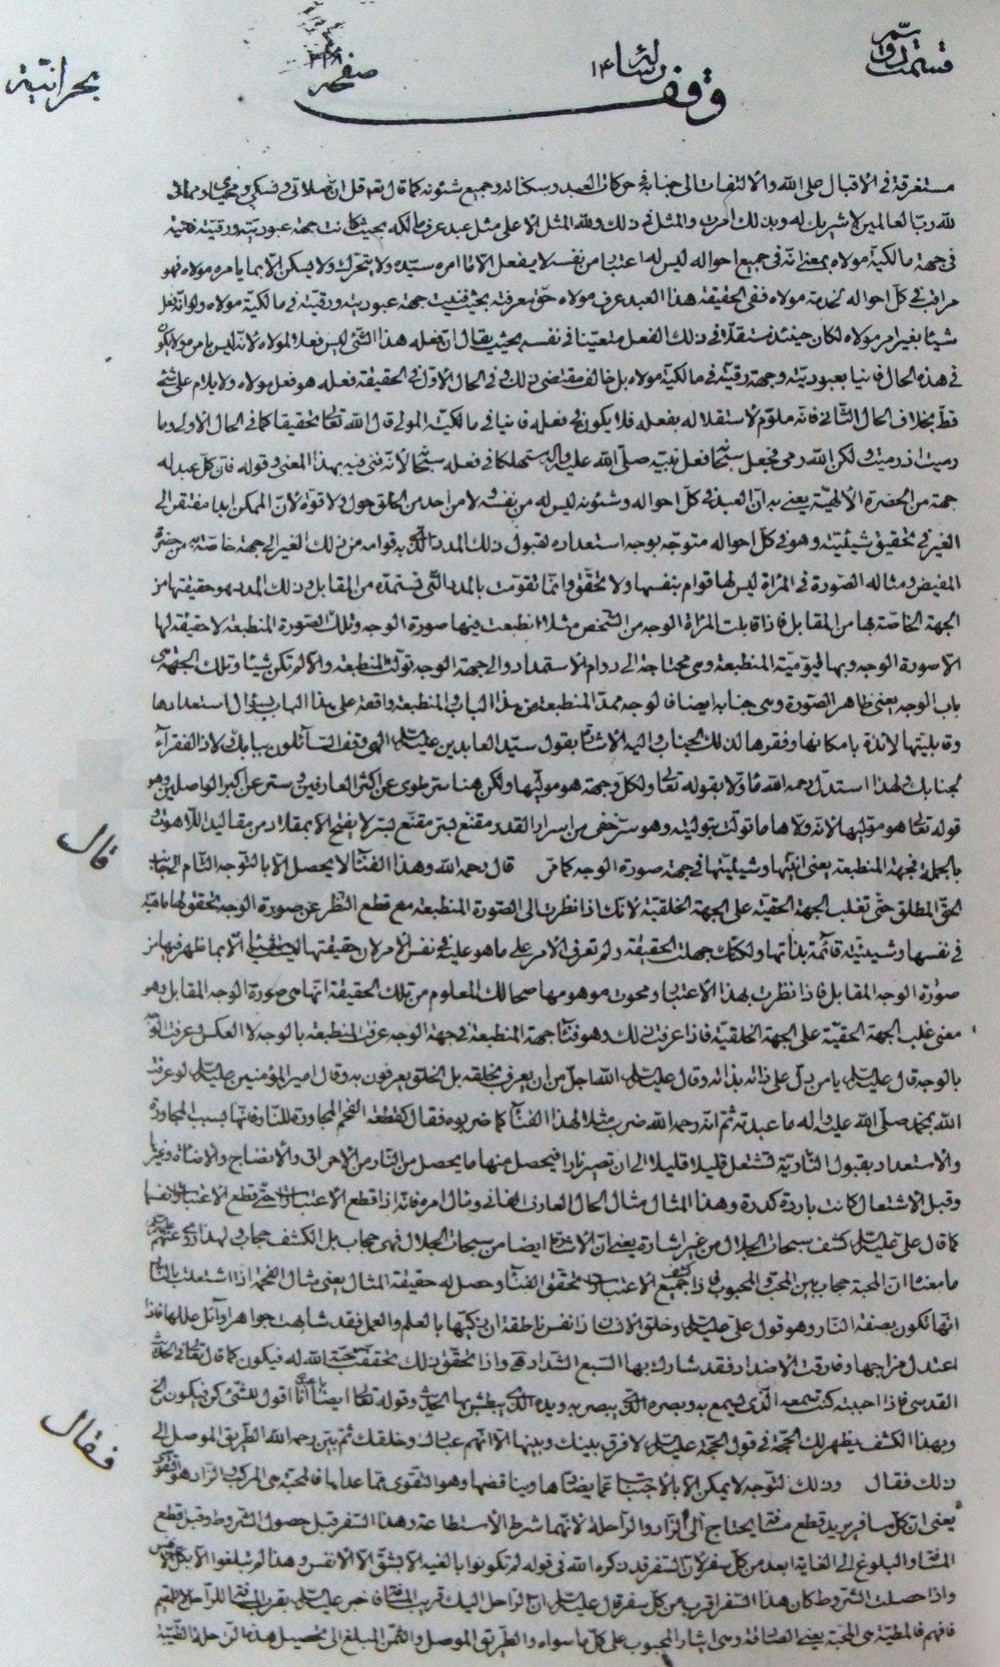 قسمت دوّم
رسالة ١٤
وقف
صفحه ٢٢٨
بحرانیّة
مستغرقة في الاقبال على الله والالتفات الى جنابه في حركات العبد وسكناته وجميع شئونه كما قال تعالى قل ان صلاتي ونسكي ومحياي ومماتي
لله رب العالمين لا شريك له وبذلك امرت والمثال في ذلك ولله المثل الاعلى مثل عبد عرف مالكه بحيث كانت جهة عبوديّته ورقيّته فانية
في جهة مالكيّة مولاه بمعنى انّه في جميع احواله ليس له اعتبار من نفسه لا يفعل الّا ما امره سيّده ولا يتحرّك ولا يسكن الّا بما يامره مولاه فهو
مراقب في كلّ احواله لخدمة مولاه ففي الحقيقة هذا العبد عرف مولاه حقّ معرفته بحيث فنيت جهة عبوديته ورقيّته في مالكيّة مولاه ولو انّه فعل
شيئا بغير امر مولاه لكان حينئذ مستقلّا في ذلك الفعل متعيّنا في نفسه بحيث يقال انّ فعله هذا الشيء ليس فعلا لمولاه لانّه ليس بامر مولاه
في هذه الحال فانيا بعبوديّته وجهة رقيّته في مالكيّة مولاه بل خالف مقتضى ذلك وفي الحال الاوّل في الحقيقة فعله هو فعل مولاه ولا يلام على شيء
قطّ بخلاف الحال الثاني فانّه ملوم لاستقلاله بفعله فلا يكون في فعله فانيا في مالكيّة المولى قال الله تعالى تحقيقا كما في الحال الاولى وما
رميت اذ رميت ولكن الله رمى فجعل سبحانه فعل نبيّه صلّى الله عليه وآله مستهلكا في فعله سبحانه لانّه فنى فيه بهذا المعنى وقوله فان كلّ عبد له
جهة من الحضرة الالهيّة يعني به انّ العبد في كلّ احواله وشئونه ليس له من نفسه ولا من احد من الخلق حول ولا قوة لانّ الممكن ابدا مفتقر الى
الغير في تحقيق شيئيّته وهو في كلّ احواله متوجّه بوجه استعداده لقبول ذلك المدد الّذي به قوامه من ذلك الغير الى جهة خاصّة به من حضرة
المفيض ومثاله الصّورة في المراة ليس لها قوام بنفسها ولا تحقّق وانّما تقوّمت بالمدد الّتي تستمدّه من المقابل وذلك المدد هو حقيقتها من
الجهة الخاصّة بها من المقابل فاذا قابلت المراة الوجه من الشّخص مثلا انطبعت فيها صورة الوجه وتلك الصّورة المنطبعة لا حقيقة لها
الّا صورة الوجه وبها قيّوميّة المنطبعة وهي محتاجة الى دوام الاستمداد والى جهة الوجه تولّت المنطبعة والّا لم تكن شيئا وتلك الجهة هي
باب الوجه يعني ظاهر الصّورة وهي جنابه ايضا فالوجه ممدّ المنطبعة من هذا الباب والمنطبعة واقفة على هذا الباب بسؤال استعدادها
وقابليّتها لائذة بامكانها وفقرها لذلك الجناب واليه الاشارة بقول سيّد العابدين عليه السّلام الهي وقف السّائلون ببابك ولاذ الفقرآء
بجنابك ولهذا استدلّ رحمه الله بقوله تعالى ولكلّ وجهة هو مولّيها ولكن هنا سر طوي عن اكثر العارفين وستر عن اكبر الواصلين وهو
قوله تعالى هو مولّيها لانّه ولّاها ما تولّت بتوليته وهو سرّ خفي من اسرار القدر مقنّع بسرّ مقنّع بسرّ لا يفتح الّا بمقلاد من مقاليد اللّاهوت
بالجملة فجهة المنطبعة يعني انيّتها وشيئيّتها في جهة صورة الوجه كما مرّ قال رحمه الله وهذا الفنآء لا يحصل الّا بالتوجّه التّام الى جناب
قال
الحقّ المطلق حتّى تغلب الجهة الحقيّة على الجهة الخلقيّة لانّك اذا نظرت الى الصّورة المنطبعة مع قطع النّظر عن صورة الوجه تحقّق لها
في نفسها وشيئيّته قائمة بذاتها ولكنّك جهلت الحقيقة ولم تعرف الامر على ما هو عليه في نفس الامر لان حقيقتها ليست شيئا الّا بما ظهر فيها من
صورة الوجه المقابل فاذا نظرت بهذا الاعتبار ومحوت موهومها صحا لك المعلوم من تلك الحقيقة انّها هي صورة الوجه المقابل وهو
معنى غلب الجهة الحقيّة على الجهة الخلقيّة فاذا عرفت ذلك وهو فنآء جهة المنطبعة في جهة الوجه عرفت المنطبعة بالوجه لا العكس وعرفت الوجه
بالوجه قال عليه السّلام يا من دلّ على ذاته بذاته وقال عليه السّلام الله اجلّ من ان يعرف بخلقه بل الخلق يعرفون به وقال امير المؤمنين عليه السّلام لو عرفت
الله بمحمّد صلّى الله عليه وآله ما عبدته ثمّ انّه رحمه الله ضرب مثلا لهذا الفنآء كما ضربوه فقال كقطعة الفحم المجاورة للنار فانّها بسبب المجاورة
والاستعداد بقبول النّاريّة تشتعل قليلا قليلا الى ان تصير نارا فيحصل منها ما يحصل من النّار من الاحراق والانضاج والاضائة وغيرها
وقبل الاشتعال كانت باردة كدرة وهذا المثال مثال الحال العارف الفاني ومآل امره فانّه اذا قطع الاعتبارات حتّى قطع الاعتبار نفسه
كما قال علي عليه السّلام كشف سبحات الجلال من غير اشارة يعني انّ الاشارة ايضا من سبحات الجلال فهي حجاب بل الكشف حجاب ولهذا روي عنهم
ما معناه انّ المحبة حجاب بين المحبّ والمحبوب فاذا كشف جميع الاعتبارات تحقّق الفنآء وحصل له حقيقة المثال يعني مثال الفحمة اذا اشتعلت بالنّار
انّها تكون بصفة النّار وهو قول علي عليه السّلام وخلق الانسان ذا نفس ناطقة ان زكّيها بالعلم والعمل فقد شابهت جواهر اوآئل عللها فاذا
اعتدل مزاجها وفارقت الاضداد فقد شارك بها السّبع الشّداد واذا تحقّق ذلك تحقّقت محبّة الله له فيكون كما قال تعالى في الحديث
القدسي فاذا احببته كنت سمعه الّذي يسمع به وبصره الّذي يبصر به ويده الّتي يبطش بها الحديث وقوله تعالى ايضا انا اقول للشّيء كن فيكون الخ
وبهذا الكشف يظهر لك الحجّة في قول الحجّة عليه السّلام لا فرق بينك وبينها الّا انّهم عبادك وخلقك ثمّ بيّن رحمه الله الطّريق الموصل الى
ذلك فقال وذلك التوجه لا يمكن الّا بالاجتناب عمّا يضادّها ويناقضها وهو التّقوى عمّا عداها فالمحبّة هي المركب والزّاد هو التّقوى
فقال
يعني ان كلّ مسافر يريد قطع مسافة يحتاج الى الزّاد والرّاحلة لانّهما شرط الاستطاعة وهذا السّفر قبل حصول الشّروط وقبل قطع
المسافة والبلوغ الى الغاية ابعد من كلّ سفر لانّ السّفر قد ذكره الله في قوله لم تكونوا بالغيه الّا بشقّ الانفس وهذا لم تبلغوا الّا
واذا حصلت الشّروط كان هذا السّفر اقرب من كلّ سفر قال عليه السّلام انّ الرّاحل اليك قريب المسافة خبر عليه السّلام بقرب المسافة للرّاحل
فافهم فالمطيّة هي المحبة يعني الصّادقة وهي ايثار المحبوب على كلّ ما سواه والطّريق الموصل والثّمن المبلغ الى تحصيل هذه الرّاحلة